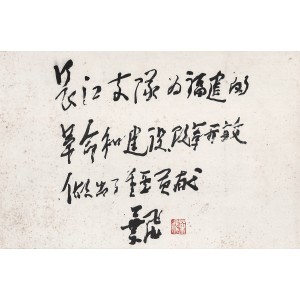 长江支队为福建的
革命和建设改革开放
做出了重要贡献
葉飞